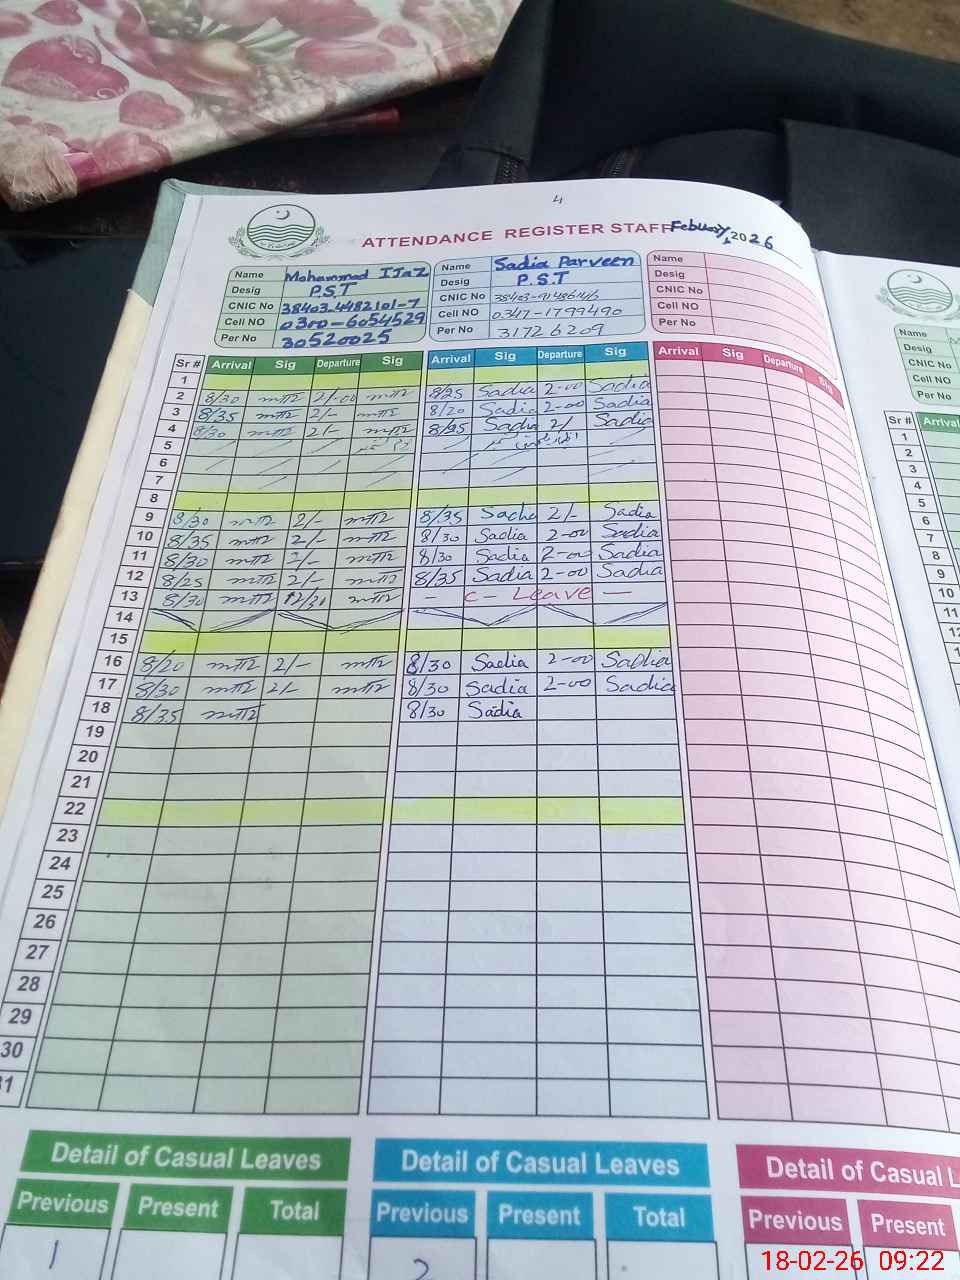 4
ATTENDANCE REGISTER STAFF Febuary, 2026
Name Mohammad IJaz
Desig P.S.T
CNIC No 38403-4482101-7
Cell NO 0300-6054529
Per No 30520025
Name Sadia Parveen
Desig P.S.T
CNIC No
Cell NO 0347-1799490
Per No 31726209
Name
Desig
CNIC No
Cell NO
Per No
Sr # Arrival Sig Departure Sig Arrival Sig Departure Sig Arrival Sig Departure Sig
1
2 8/30 2/-00 8/25 Sadia 2-00 Sadia
3 8/35 2/- 8/20 Sadia 2-00 Sadia
4 8/30 2/- 8/35 Sadia 2/ Sadia
5
6
7
8
9 8/30 2/- 8/35 Sadia 2/- Sadia
10 8/35 2/- 8/30 Sadia 2-00 Sadia
11 8/30 2/- 8/30 Sadia 2-00 Sadia
12 8/25 2/- 8/35 Sadia 2-00 Sadia
13 8/30 12/30 - C - Leave -
14
15
16 8/20 2/- 8/30 Sadia 2-00 Sadia
17 8/30 2/- 8/30 Sadia 2-00 Sadia
18 8/35 8/30 Sadia
19
20
21
22
23
24
25
26
27
28
29
30
31
Detail of Casual Leaves Detail of Casual Leaves Detail of Casual L
Previous Present Total Previous Present Total Previous Present
1 2
Name
Desig
CNIC No
Cell NO
Per No
Sr # Arrival
1
2
3
4
5
6
7
8
9
10
11
12
18-02-26 09:22